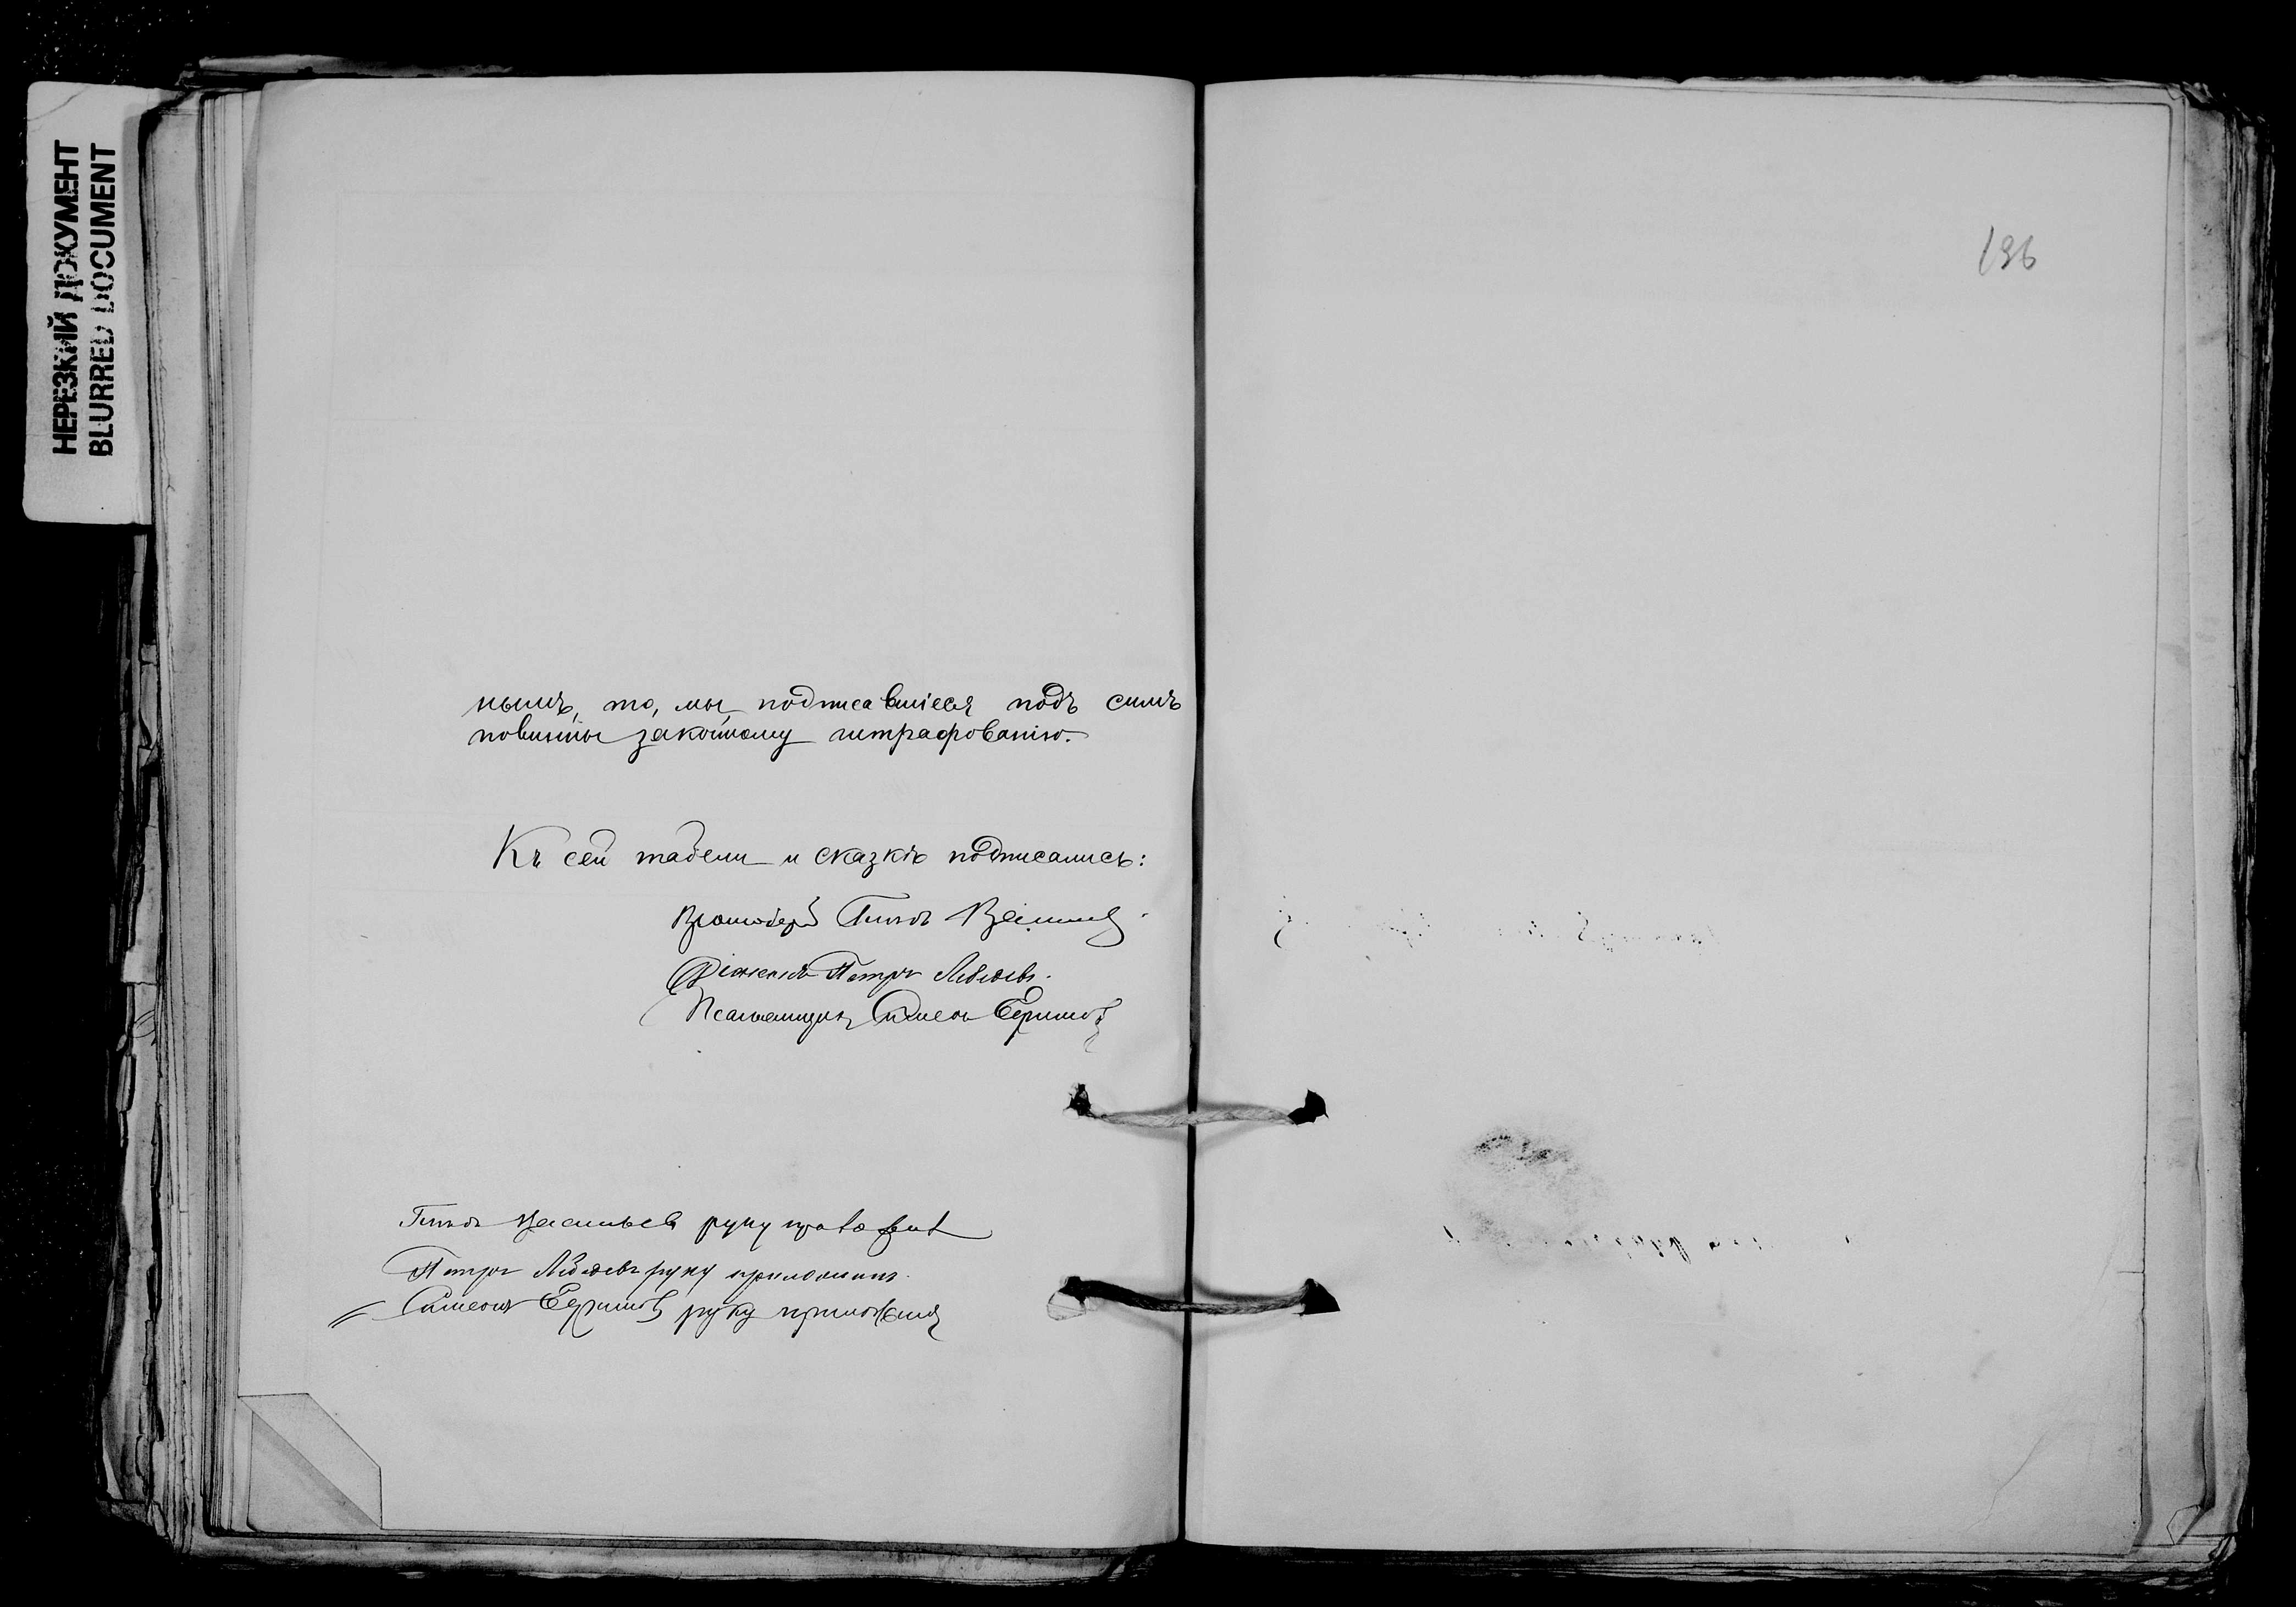 НЕРЕЗКИЙ ДОКУМЕНТ
BLURRED DOCUMENT
нымъ, то, мы, подписавшіеся подъ симъ
повинны законному штрафованію.
Къ сей табели и сказкѣ подписались:
Титъ
Діаконъ Петръ Лебедевъ.
Псаломщикъ Симеонъ Ефимовъ
Титъ Васильевъ руку приложилъ
Петръ Лебедевъ руку приложилъ.
Симеонъ Ефимовъ руку приложилъ
196